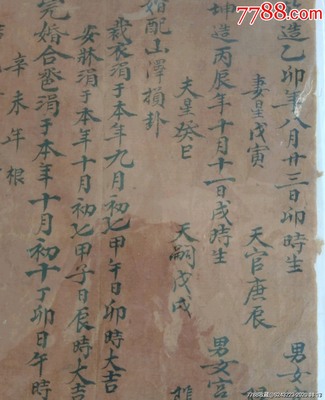 7788.com
造乙卯年八月廿三日卯時生
妻星戊寅 天官庚辰 男女宮
坤造丙辰年十月十一日戌時生
夫星癸巳 天嗣戊戌 男女宮
婚配山澤損卦
裁衣涓于本年九月初七甲午日卯時大吉
安牀涓于本年十月初七甲子日辰時大吉
完婚合卺涓于本年十月初十丁卯日午時
辛未年根